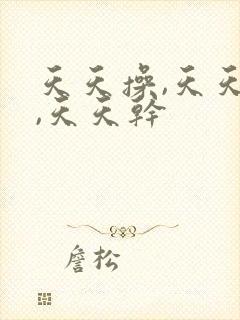 天天操,天天
,天天幹
詹松